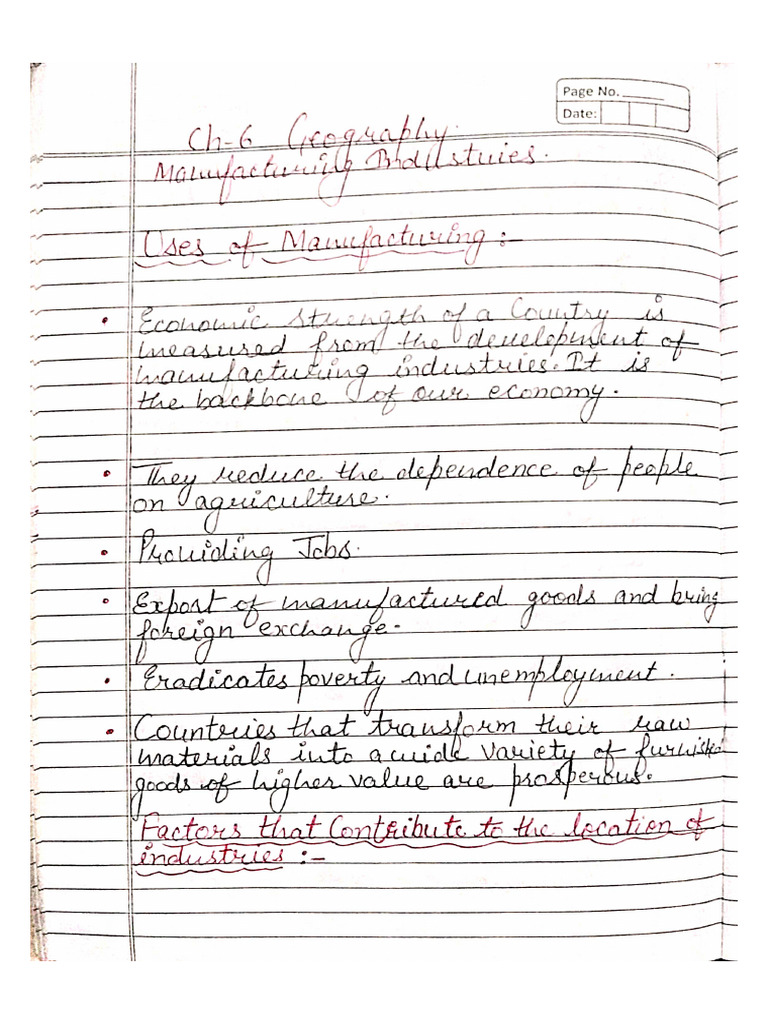 Page No.
Date:
Ch-6 Geography.
Manufacturing Industries.
Uses of Manufacturing :-
• Economic strength of a Country is
measured from the development of
manufacturing industries. It is
the backbone of our economy.
• They reduce the dependence of people
on agriculture.
• Providing Jobs.
• Export of manufactured goods and bring
foreign exchange.
• Eradicates poverty and unemployment.
• Countries that transform their raw
materials into a wide variety of furnished
goods of higher value are prosperous.
Factors that Contribute to the location of
industries :-